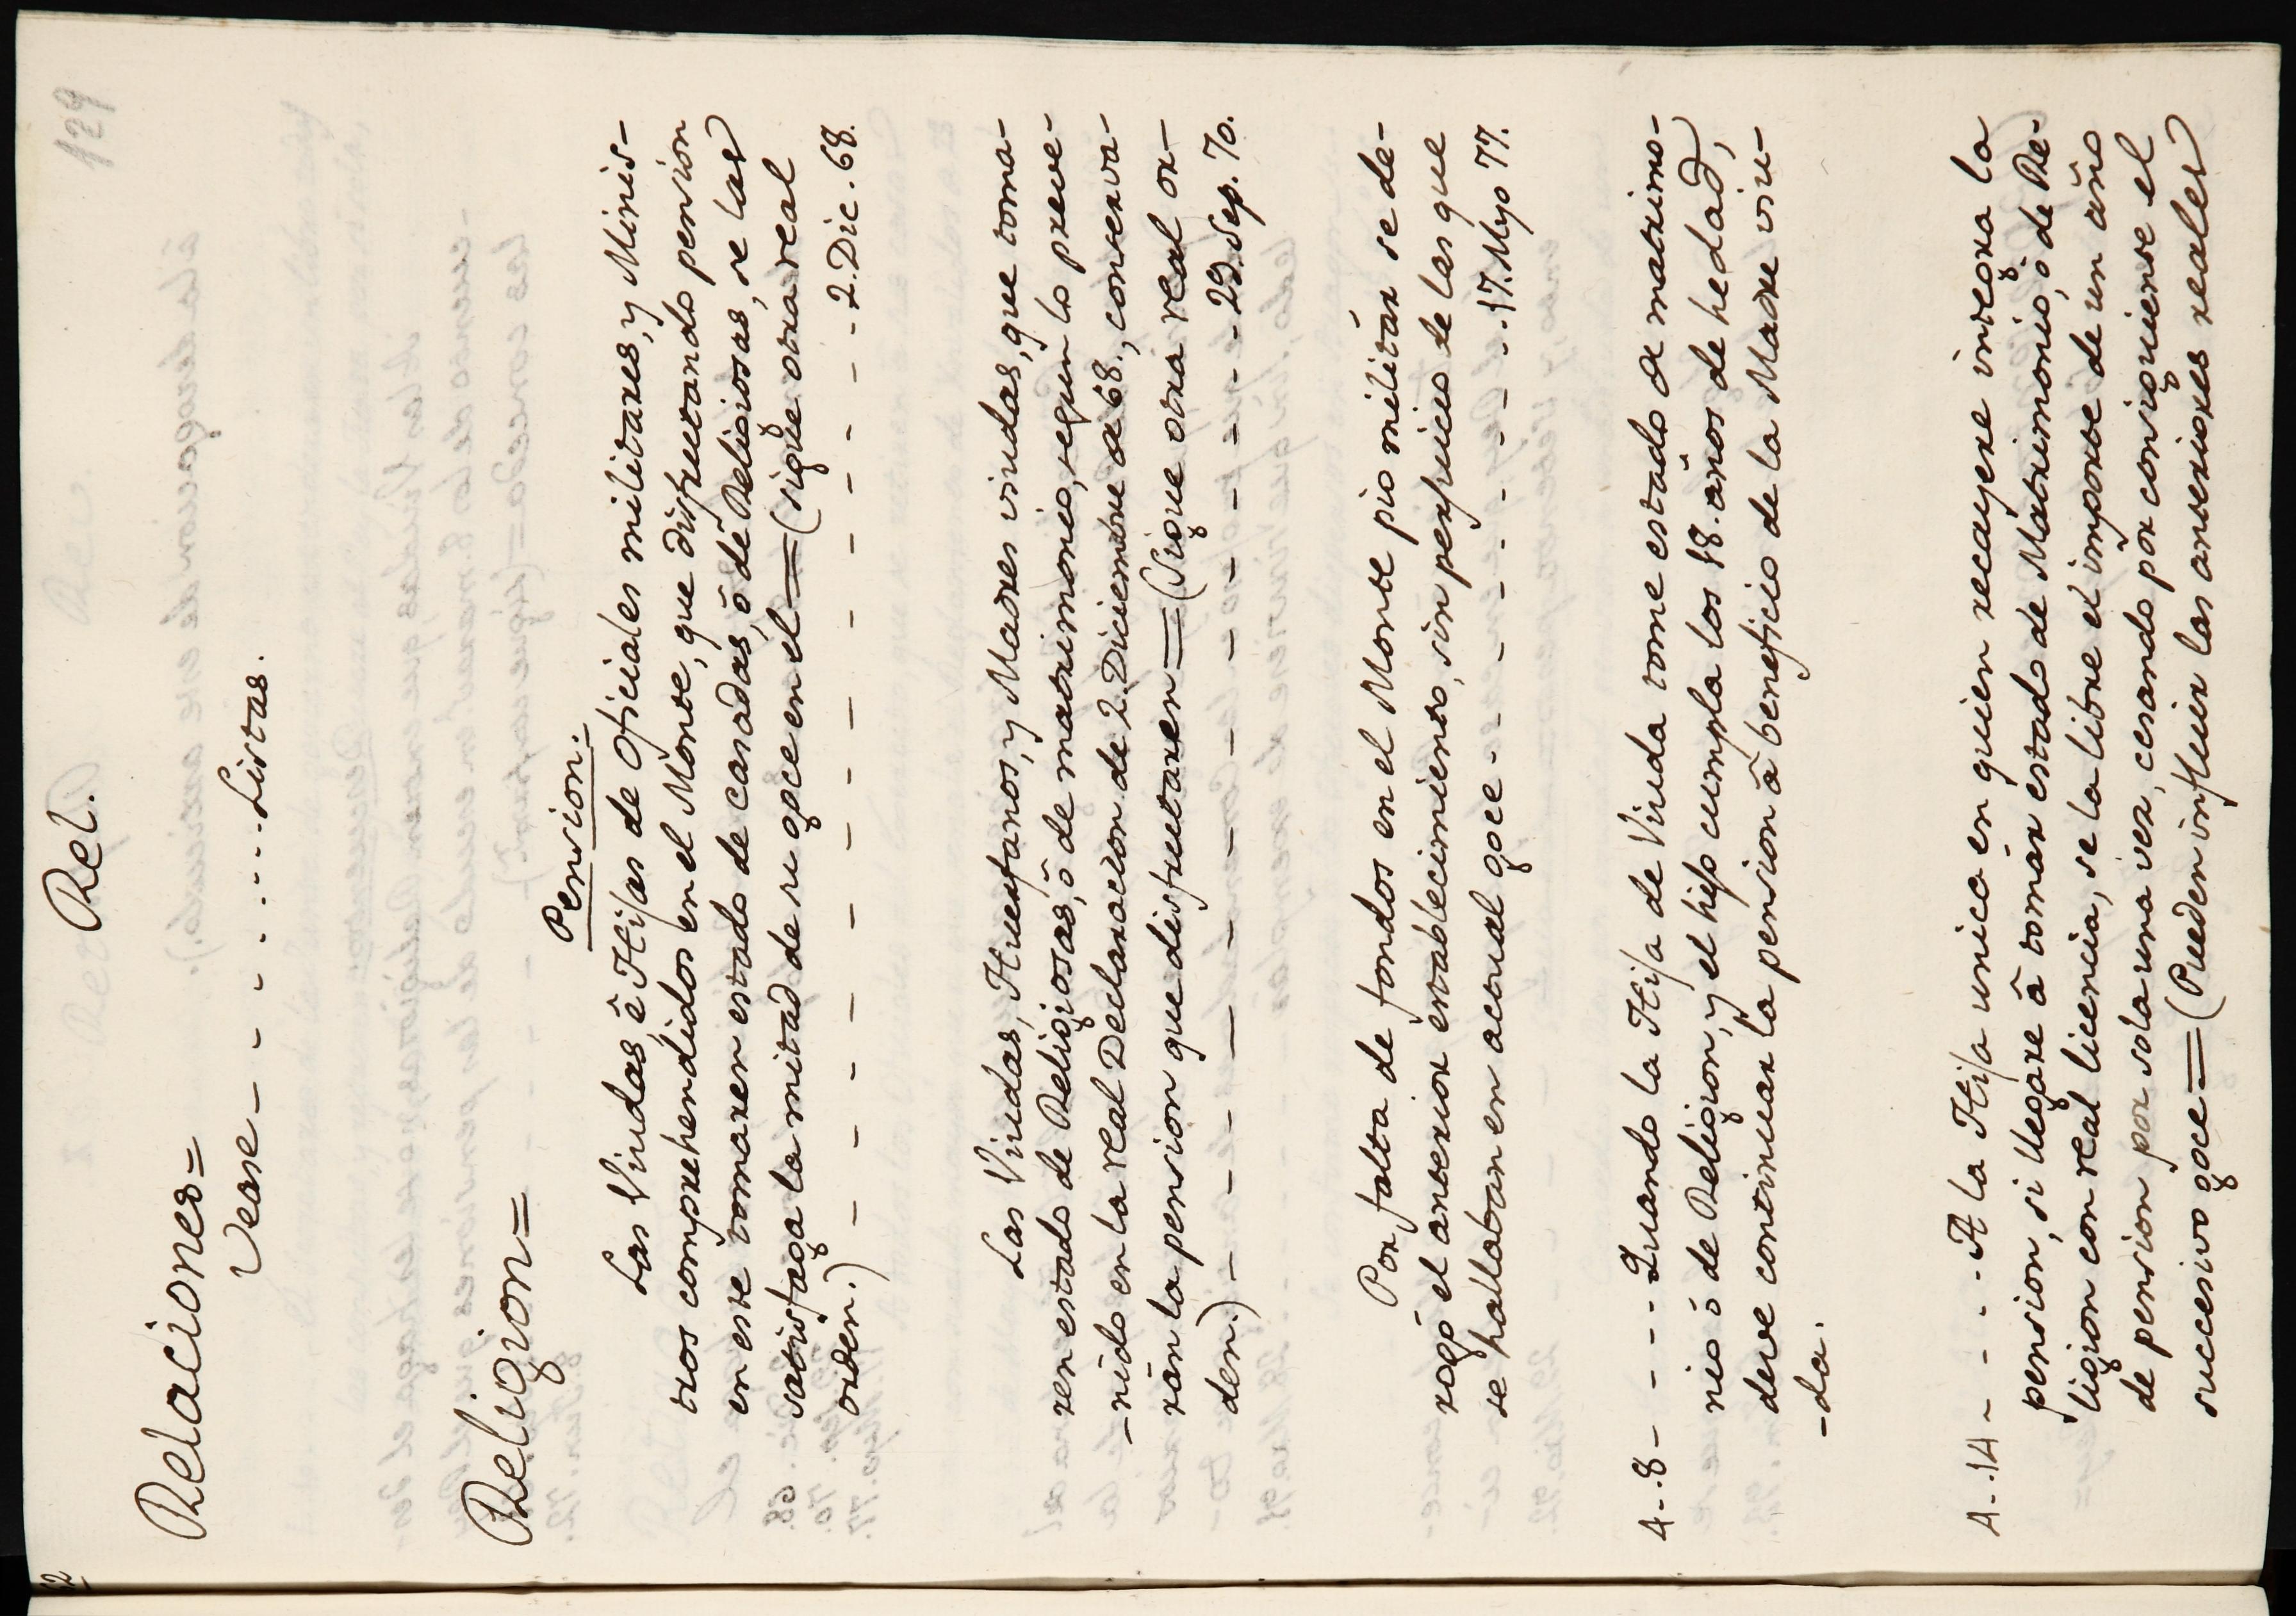 Rel.
129
Relaciones=
Vease - - - - - - - - Listas.
Religion=
Pension.=
Las Viudas, ê Hijas de Oficiales militares, y Minis-
tros comprehendidos en el Monte, que disfrutando pension
en este tomaren estado de casadas, ô de Religiosas, se las
satisfaga la mitad de su goce en el = (sigue otra real
orden.) - - - - - - - - - - - - - - - - 2. Dic. 68.
Las Viudas, Huerfanos, y Madres viudas, que toma-
ren estado de Religiosas, ô de matrimonio, segun lo preve-
-nido en la real Declaracion de 2. Diciembre de 68., conserva-
rân la pension que disfrutaren = (Sigue otra real or-
den.) - - - - - - - - - - - - - - 29. Sep. 70.
Por falta de fondos en el Monte pio militár se de-
rogó el anterior establecimiento, sin perjuicio de las que
se hallaban en actual goce - - - - - - - - 17. Myo 77.
4-.8 - - - - Quando la Hija de Viuda tome estado de matrimo-
nio ô de Religion, y el hijo cumpla los 18. años de hedad,
deve continuar la pension â beneficio de la Madre viu-
-da.
4-.14 - - - - A la Hija unica en quien recayere integra la
pension, si llegare â tomár estado de Matrimonio, ô de Re-
ligion con real licencia, se la libre el importe de un año
de pension por sola una vez, cesando por consiguiente el
succesivo goce = (Pueden influir las anteriores reales